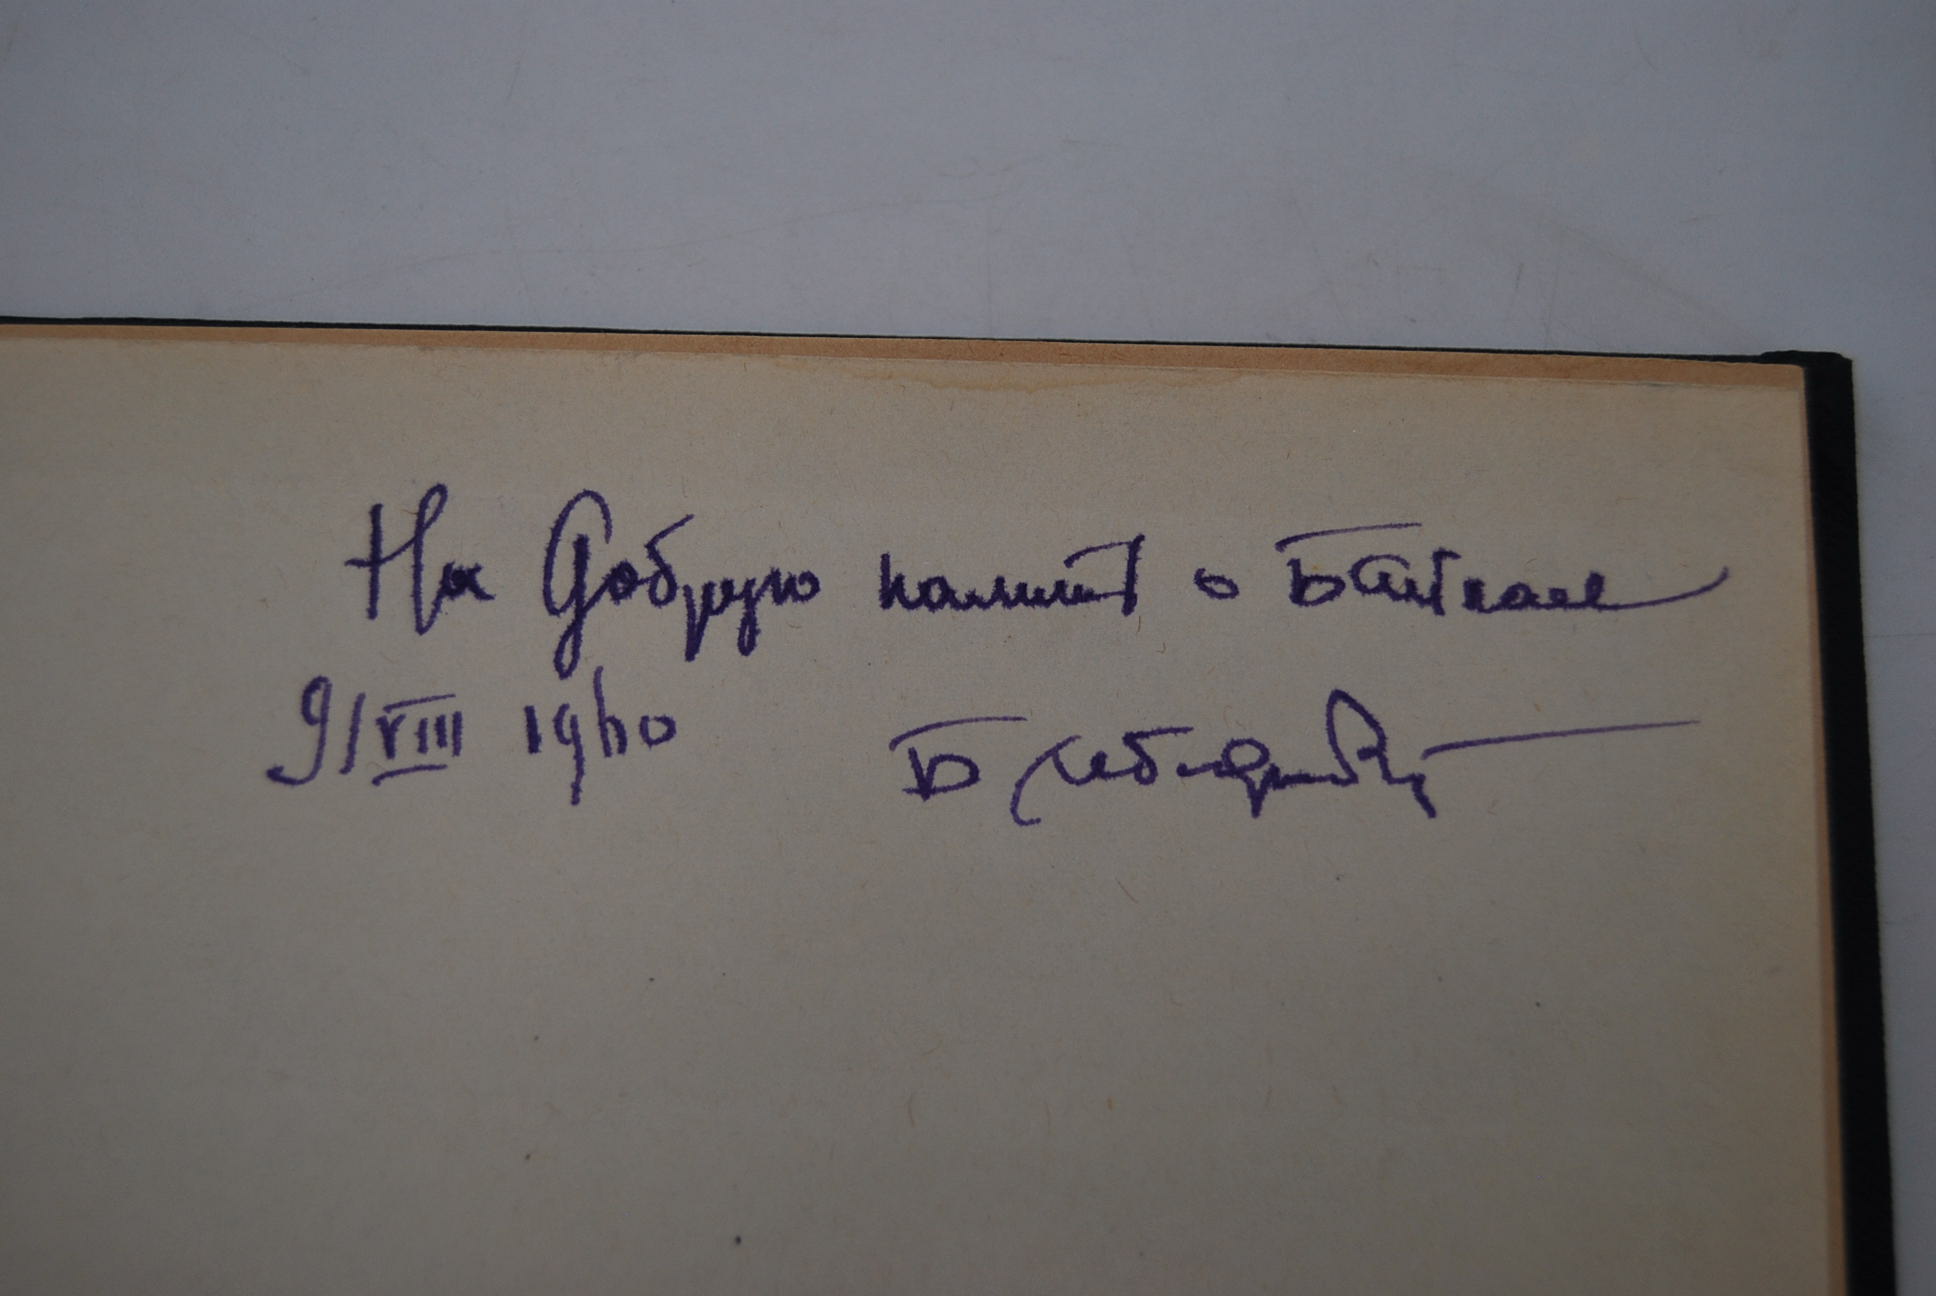 На Добрую память о Байкале
9/VIII 1960 Б